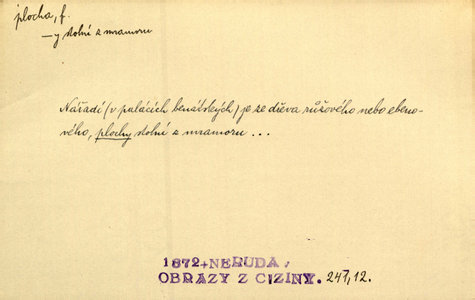 plocha, f.
—y stolní z mramoru
Nářadí (v palácích benátských) je ze dřeva růžového nebo ebeno-
vého, plochy stolní z mramoru ...
1872+NERUDA,
OBRAZY Z CIZINY. 247,12.